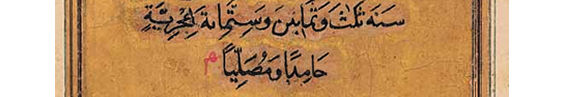 سَنَة ثَلٰث وَثَمٰانِينَ وَسِتّمِائة لهِجْرِيَّةٍ
حَامِدًا وَمُصَلِّيًا م